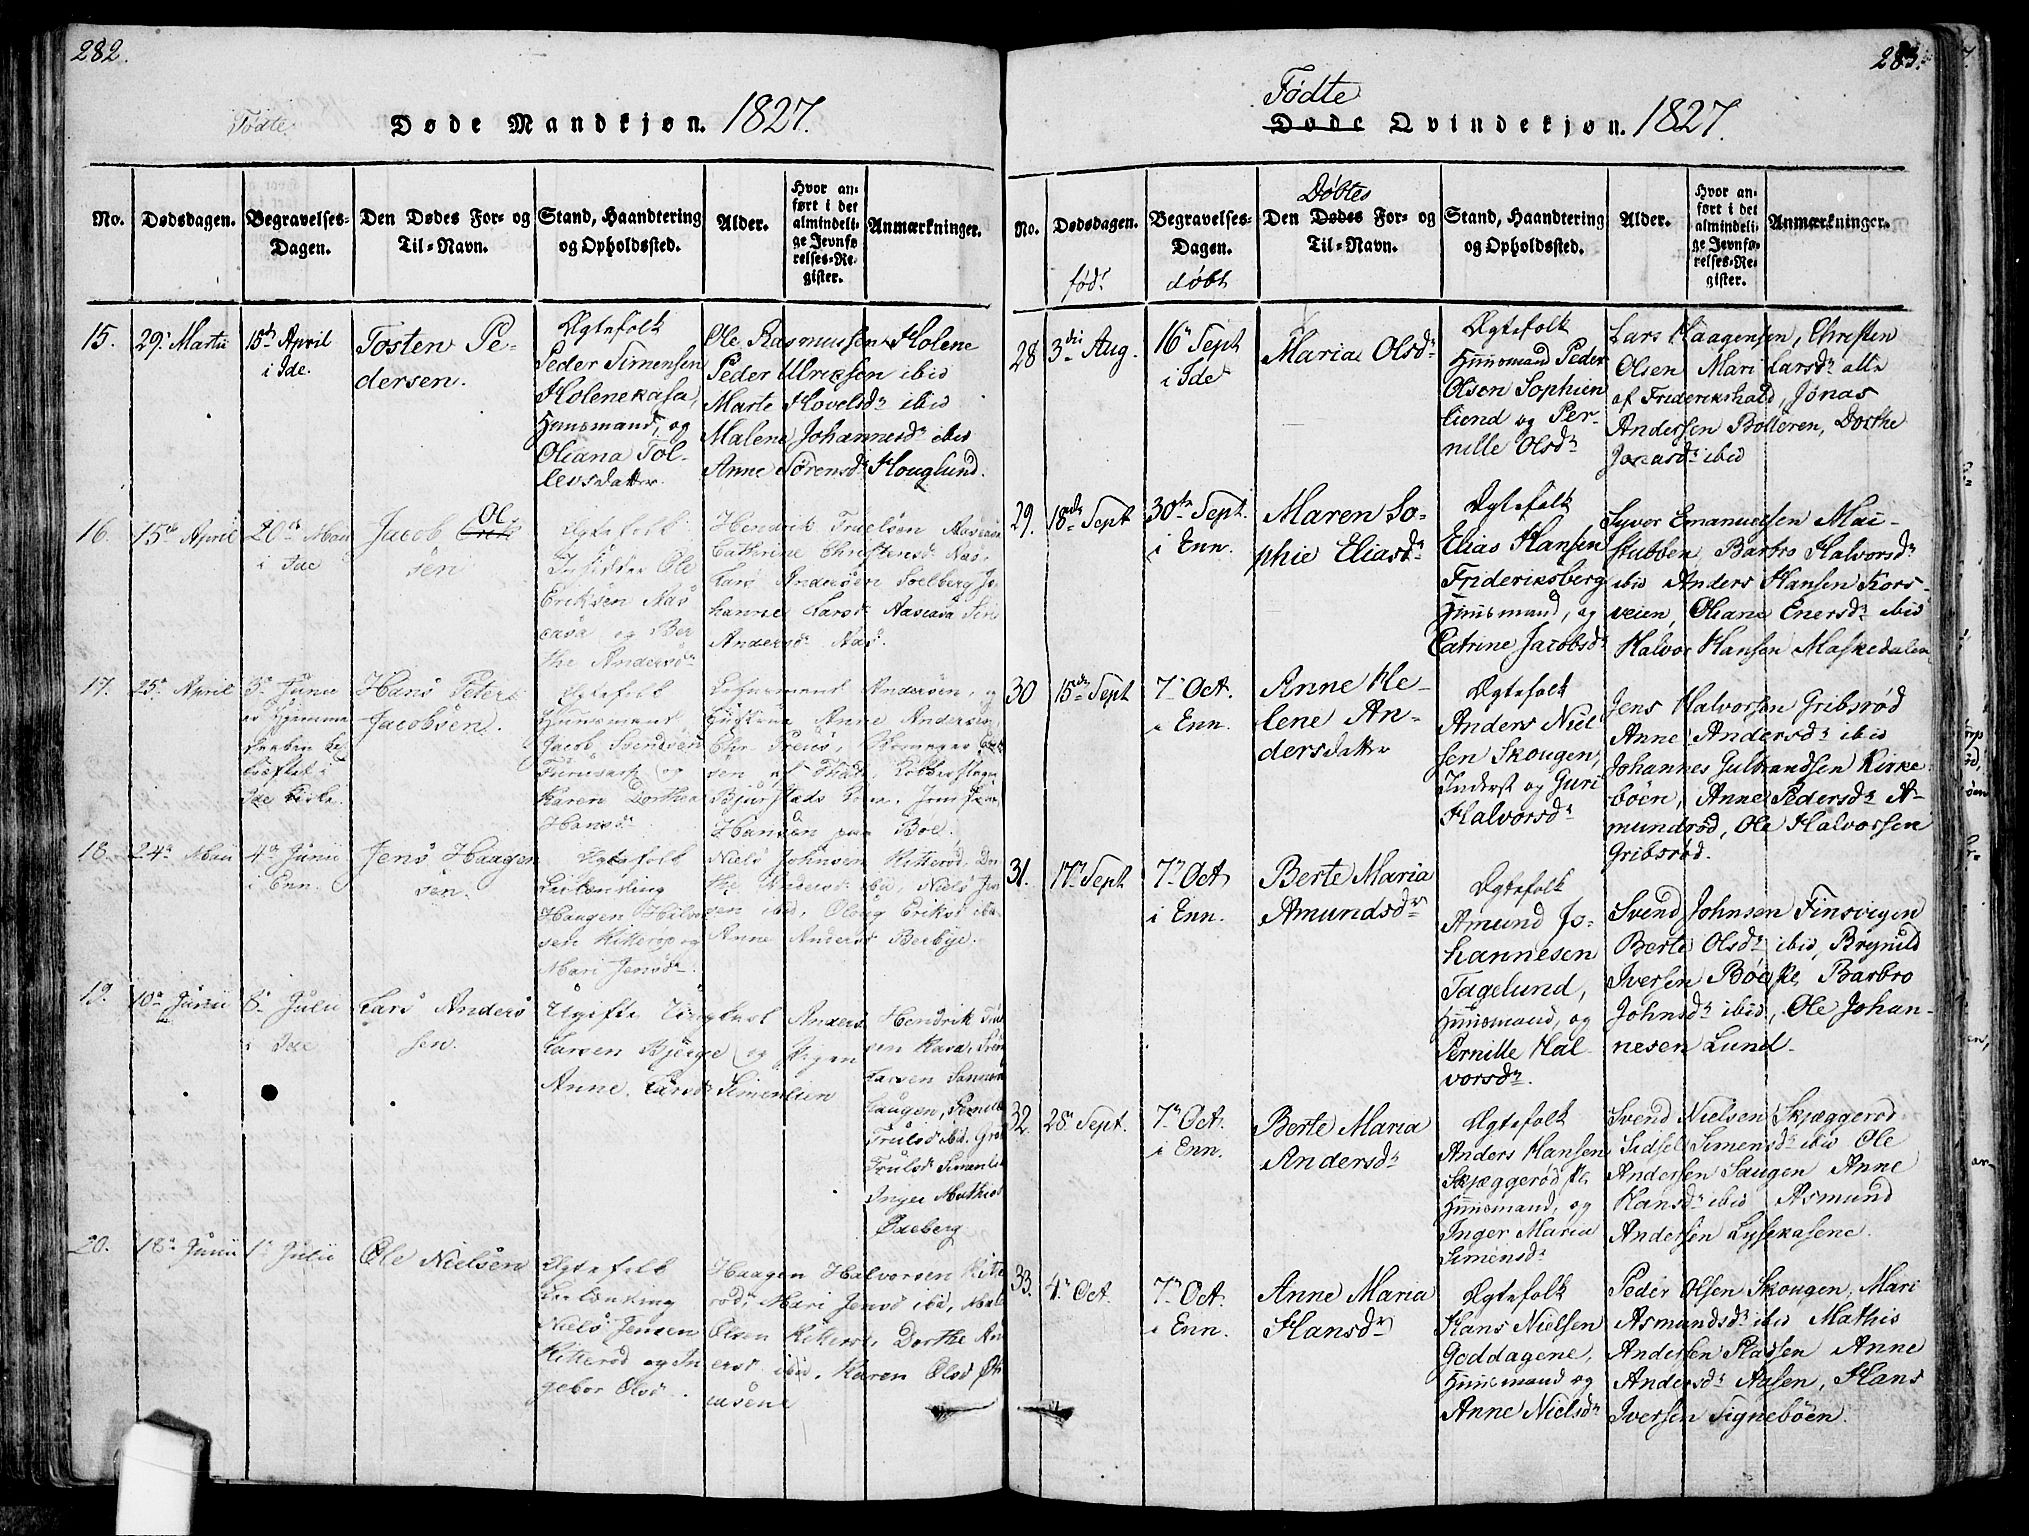 282.
Fødte.
Døde Mandkjøn. 1827.
No.
Dødsdagen.
Begravelses-
Dagen.
Den Dødes For- og
Til-Navn.
Stand, Haandtering
og Opholdssted.
Alder.
Hvor an-
ført i det
almindeli-
ge Jevnfø-
relses-Re-
gister.
Anmærkninger.
15.
29. Martii
15de April
i Ide.
Tosten Pe-
dersen.
Ægtefolk
Peder Simensen
Holenekasa,
Huusmand, og
Oliana Tol-
levsdatter.
Ole Rasmussen Holene
Peder Ulriksen ibid
Marte Hovelsdr ibid
Malene Johannesdr ibid
Anne Sørensdr Houglund.
16.
15de April
20de Mai
i Ide
Jacob Ol
sen
Ægtefolk
Insidder Ole
Eriksen Aas
casa og Ber
the Andersdr
Hendrik Truelsen Aascasa
Cathrine Christensd Aas.
Lars Andersen Soelberg Jo
hanne Larsd Aascasa Siri
Andersd Aas.
17.
25de April
3de Junii
Ide Kirke.
Hans Peter
Jacobsen.
Ægtefolk
Huusmand
Jacob Svendsen
og
Karen Dorthea
Hansdr
Andersen, og
Anne Anders
Hansen paa Bøe.
18.
24de Mai
4de Junii
i Enn.
Jens Haagen
sen.
Ægtefolk
Leilending
Haagen Halvor
sen Kitterøp og
Mari Jensdr
Niels Johnsen Kitterød, Dor
the Andersd ibid, Niels Jen
sen ibid, Oloug Eriksd ibid
Anne Andersd Berbye.
19.
10de Junii
8de Julii
i Ide
Lars Anders
sen.
Ugifte Ungkarl Anders
Larsen Bjerge og Pigen
Anne Larsdr Simenlien
Hendrik
sen Kasa,
Larsen Sannes
haugen, Pernille
Trulsd ibid. Gro
Trulsd Simenli
Inger Mathis
Ødeberg.
20.
18de Junii
1de Julii
Ole Nielsen
Ægtefolk
Leilending
Niels Jensen
Kitterød og In
gebor Olsd.
Haagen Halvorsen Kitte
rød, Mari Jensd ibid,
Olsen Kitterød, Dorthe An
dersd ibid, Karen Olsd
casene
283.
Fødte
Døde Qvindekjøn. 1827.
No.
Dødsdagen.
født
Begravelses-
Dagen.
døbt
Døbtes
Den Dødes For- og
Til-Navn.
Stand, Haandtering
og Opholdssted.
Alder.
Hvor an-
ført i det
almindeli-
ge Jevnfø-
relses-Re-
gister.
Anmærkninger.
28
3die Aug.
16de Sept
i Ide
Maria Olsdr
Ægtefolk
Huusmand Peder
Olsen Sophien
liend og Per-
nille Olsdr
Lars Haagensen, Christen
Olsen Mari Larsdr alle
af Frederikshald, Jonas
Andersen Bolleren, Dorthe
Jonasdr ibid
29.
18de Sept
30te Sept.
i Enn.
Maren So-
phie Eliasdr
Ægtefolk
Elias Hansen
Frideriksberg
Huusmand, og
Catrine Jacobsdr
Syver Emanuelsen Mai-
stubben Barbro Halvorsdr
ibid Anders Hansen Kors-
veien, Oliane Enersdr ibid
Halvor Hansen Maskedalen
30
15de Sept
7de Oct.
i Enn.
Anne He-
lene An-
dersdatter
Ægtefolk
Anders Niel-
sen Skougen,
Inderst og Guri
Halvorsdr
Jens Halvorsen Gribsrød
Anne Andersdr ibid
Johannes Gulbrandsen Kirke-
bøen, Anne Pedersdr A-
mundrød, Ole Halvorsen
Gribsrød.
31.
17de Sept
7de Oct
i Enn.
Berte Maria
Amundsdr
Ægtefolk
Amund Jo-
hannesen
Tagelund,
Huusmand, og
Pernille Hal-
vorsdr.
Svend Johnsen Finsvigen
Berte Olsdr ibid, Brynild
Iversen Bøe pl. Barbro
Johnsdr ibid, Ole Johan-
nesen Lund.
32.
28de Sept.
7de Oct.
i Enn.
Berte Maria
Andersdr
Ægtefolk
Anders Hansen
Skjæggerød pl.
Huusmand, og
Inger Maria
Simensdr
Svend Nielsen Skjæggerød
Sidsel Simensdr ibid Ole
Andersen Saugen Anne
Hansdr ibid Asmund
Andersen Lysekasene.
33.
4de Oct.
7de Oct.
i Enn.
Anne Maria
Hansdr
Ægtefolk
Hans Nielsen
Goddagene,
Huusmand og
Anne Nielsdr
Peder Olsen Skougen, Mari
Asmundsdr ibid Mathis
Andersen Pladsen Anne
Andersdr Aasen, Hans
Iversen Signebøen.